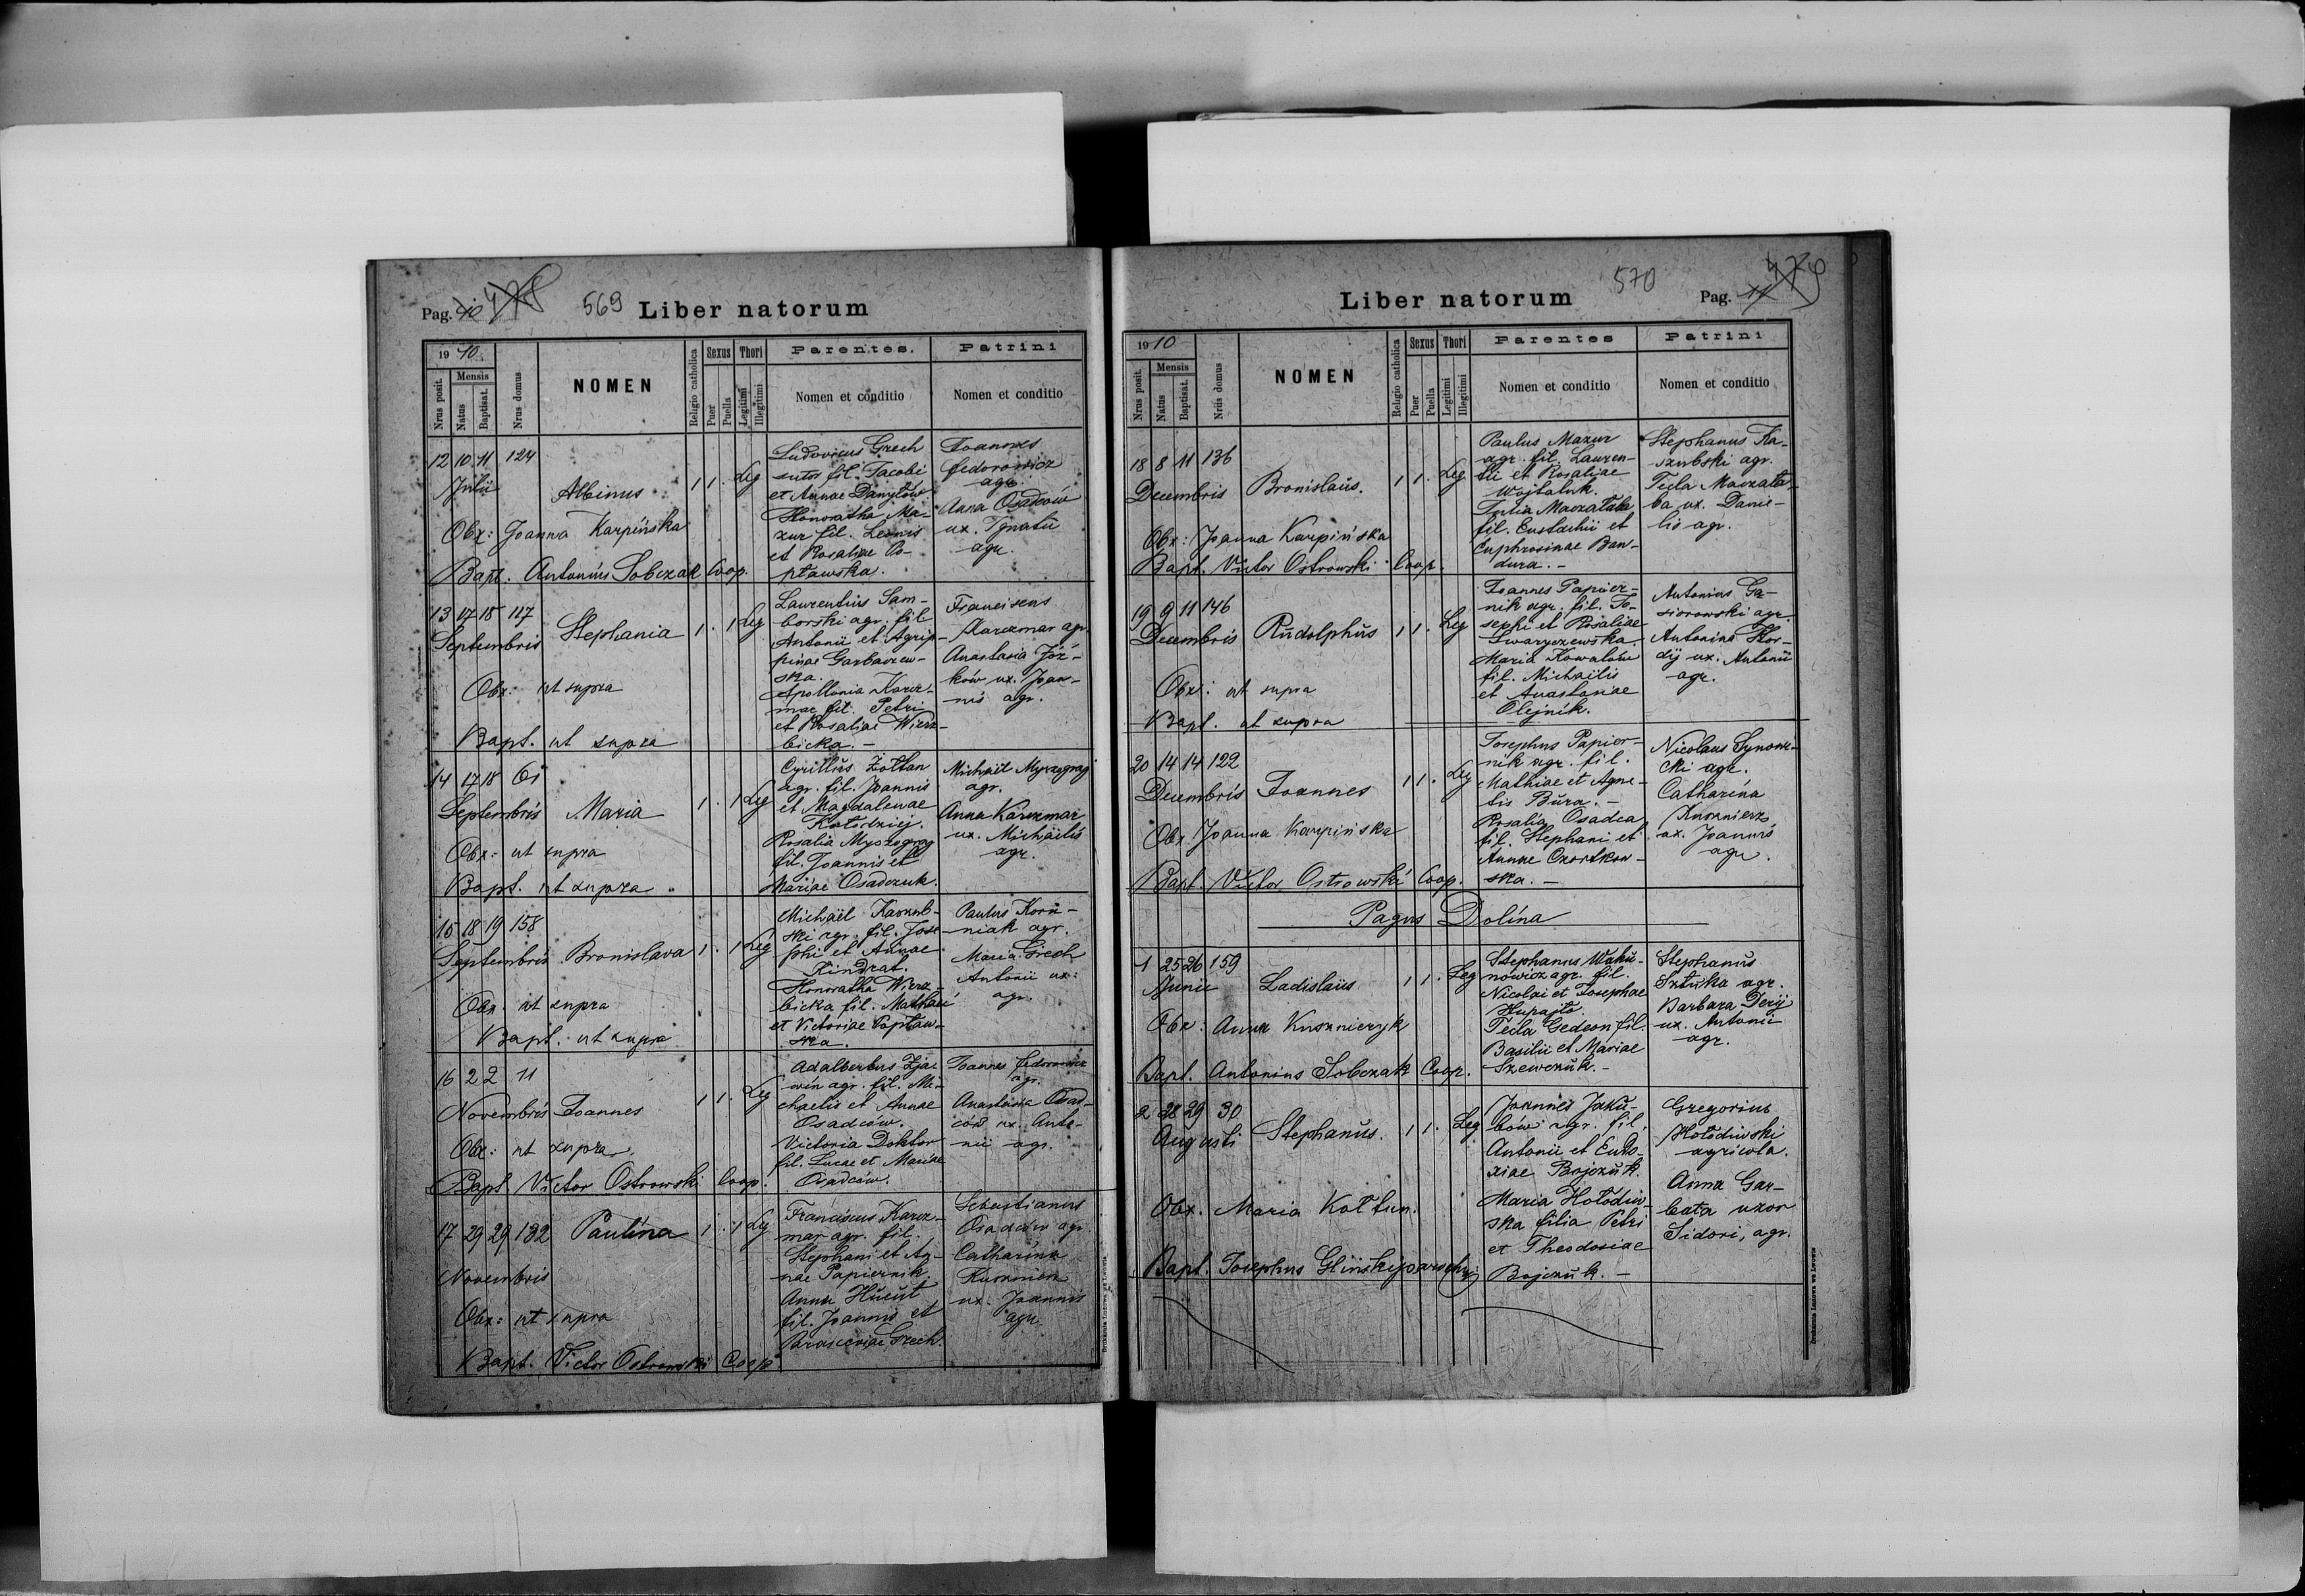 Pag. 10 478 569 Liber natorum
19 10
Nrus posit.
Mensis
Natus
Baptisat.
Nrus domus
NOMEN
Religio catholica
Sexus
Puer
Puella
Thori
Legitimi
Illegitimi
Parentes.
Nomen et conditio
Patrini
Nomen et conditio
12 10 11 124
Julii
Albinus
1 1 . Leg
Obx: Joanna Karpińska
Bapt. Antonius Sobczak Coop.
Ludovicus Grech
sutor fil. Jacobi
et Annae Danyłów
Honoratha Ma-
zur fil. Leonis
et Rosaliae Po-
pławska.
Joannes
Fedorowicz
agr.
Anna Osadców
ux. Ignatii
agr.
13 17 18 117
Septembris
Stephania
1 . 1 Leg
Obx: ut supra
Bapt. ut supra
Laurentius Sam-
borski agr. fil
Antonii et Agrip-
pinae Garbaczew-
ska.
Apollonia Karcz-
mar fil. Petri
et Rosaliae Wierz-
bicka. -
Franciscus
Karczmar agr.
Anastasia Józ-
ków ux. Joan-
nis agr.
14 17 18 61
Septembris
Maria
1 . 1 Leg
Obx: ut supra
Bapt. ut supra.
Cyrillus Żołtan
agr. fil. Joannis
et Magdalenae
Kołodziej.
Rosalia Myszograg
fil. Joannis et
Mariae Osadczuk.
Michaël Myszograg
agr.
Anna Karczmar
ux. Michaëlis
agr.
15 18 19 158
Septembris
Bronislava
1 . 1 Leg
Obx. ut supra
Bapt. ut supra
Michaël Kaszub-
ski agr. fil. Jose-
phi et Annae
Kindrat.
Honoratha Wierz-
bicka fil. Mathaei
et Victoriae Popław-
ska.
Paulus Korn-
niak agr.
Maria Grech
Antonii ux:
agr.
16 2 2 11
Novembris
Joannes
1 1 . Leg
Obx: ut supra.
Bapt. Victor Ostrowski Coop.
Adalbertus Zja-
win agr. fil. Mi-
chaelis et Annae
Osadców.
Victoria Doktor
fil. Lucae et Mariae
Osadców.
Joannes Fedorowicz
agr.
Anastasia Osad-
ców ux. Anto-
nii agr.
17 29 29 182
Paulina
1 . 1 Leg
Novembris
Obx: ut supra
Bapt. Victor Ostrowski Coop.
Franciscus Karcz-
mar agr. fil.
Stephani et An-
nae Papiernik.
Anna Hucuł
fil. Joannis et
Parasceviae Grech.
Sebastianus
Osadców agr.
Catharina
Kusznierz
ux. Joannis
agr.
Drukarnia Ludowa we Lwowie
Liber natorum 570 Pag. 11 479
19 10
Nrus posit.
Mensis
Natus
Baptisat.
Nrus domus
NOMEN
Religio catholica
Sexus
Puer
Puella
Thori
Legitimi
Illegitimi
Parentes
Nomen et conditio
Patrini
Nomen et conditio
18 8 11 136
Decembris
Bronislaus.
1 1 . Leg
Obx: Joanna Karpińska
Bapt. Victor Ostrowski Coop.
Paulus Mazur
agr. fil. Lauren-
tii et Rosaliae
Wojtaluk.
Julia Maczałaba
fil. Eustachii et
Euphrosinae Ban-
dura. -
Stephanus Ka-
szubski agr.
Tecla Maczała-
ba ux. Danie-
lis agr.
19 9 11 146
Decembris
Rudolphus
1 1 . Leg
Obx: ut supra
Bapt. ut supra
Joannes Papier-
nik agr. fil. Jo-
sephi et Rosaliae
Swaryczewska.
Maria Kowalów
fil. Michaëlis
et Anastasiae
Olejnik.
Antonius Gą-
siorowski agr.
Antonina Hor-
dij ux. Antonii
agr.
20 14 14 122
Decembris
Joannes
1 1 . Leg
Obx Joanna Karpińska
Bapt. Victor Ostrowski Coop.
Josephus Papier-
nik agr. fil.
Mathiae et Agne-
tis Bura. -
Rosalia Osadca
fil. Stephani et
Annae Czortkow-
ska. -
Nicolaus Synowi-
cki agr.
Catharina
Kusznierz
ux. Joannis
agr.
Pagus Dolina
1 25 26 159
Junii
Ladislaus
1 1 . Leg
Obx. Anna Kusznieryk
Bapt. Antonius Sobczak Coop.
Stephanus Waku-
nowicz agr. fil.
Nicolai et Josephae
Hupajło.
Tecla Gedeon fil.
Basilii et Mariae
Szewczuk. -
Stephanus
Sztuka agr.
Barbara Derij
ux. Antonii
agr.
2 28 29 30
Augusti
Stephanus.
1 1 . Leg
Obx. Maria Kołtun.
Bapt. Josephus Gliński parochus
Joannes Jaku-
bów agr. fil.
Antonii et Eudo-
xiae Bojczuk.
Maria Hołodiw-
ska filia Petri
et Theodosiae
Bojczuk. -
Gregorius
Hołodiwski
agricola.
Anna Gar-
bata uxor
Sidori, agr.
Drukarnia Ludowa we Lwowie